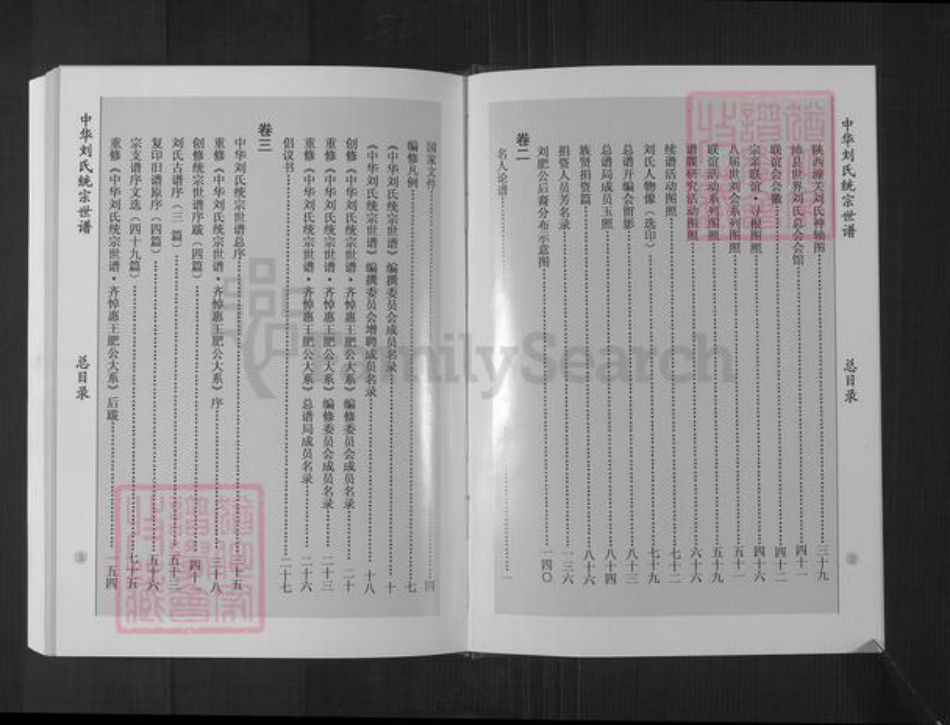 中华刘氏统宗世谱
总目录
陕西潼关刘氏神确图 三十九
沛县世界刘氏总会会馆 四十一
联谊会会徽 四十二
宗亲联谊·寻根图照 四十六
八届世刘会系列图照 五十一
联谊活动系列图照 五十九
谱牒研究活动图照 六十六
续谱活动图照 七十二
刘氏人物像(选印) 七十九
总谱开编会留影 八十三
总谱局成员玉照 八十四
族贤捐资篇 八十六
捐资人员芳名录 一三六
刘肥公后裔分布示意图 一四〇
卷二
名人论谱 一
国家文件 四
编修凡例 七
《中华刘氏统宗世谱》编撰委员会成员名录 十
《中华刘氏统宗世谱》编撰委员会增聘成员名录 十八
创修《中华刘氏统宗世谱·齐悼惠王肥公大系》编修委员会成员名录 二十
重修《中华刘氏统宗世谱·齐悼惠王肥公大系》编修委员会成员名录 二十三
重修《中华刘氏统宗世谱·齐悼惠王肥公大系》总谱局成员名录 二十六
倡议书 二十七
卷三
中华刘氏统宗世谱总序
重修《中华刘氏统宗世谱·齐悼惠王肥公大系》序 三十八
创修统宗世谱序跋(四篇) 四十
刘氏古谱序(三篇) 五十三
复印旧谱原序(四篇) 五十六
宗支谱序文选(四十九篇) 七十五
重修《中华刘氏统宗世谱·齐悼惠王肥公大系》后跋 一五四
中华刘氏统宗世谱
总目录
FamilySearch